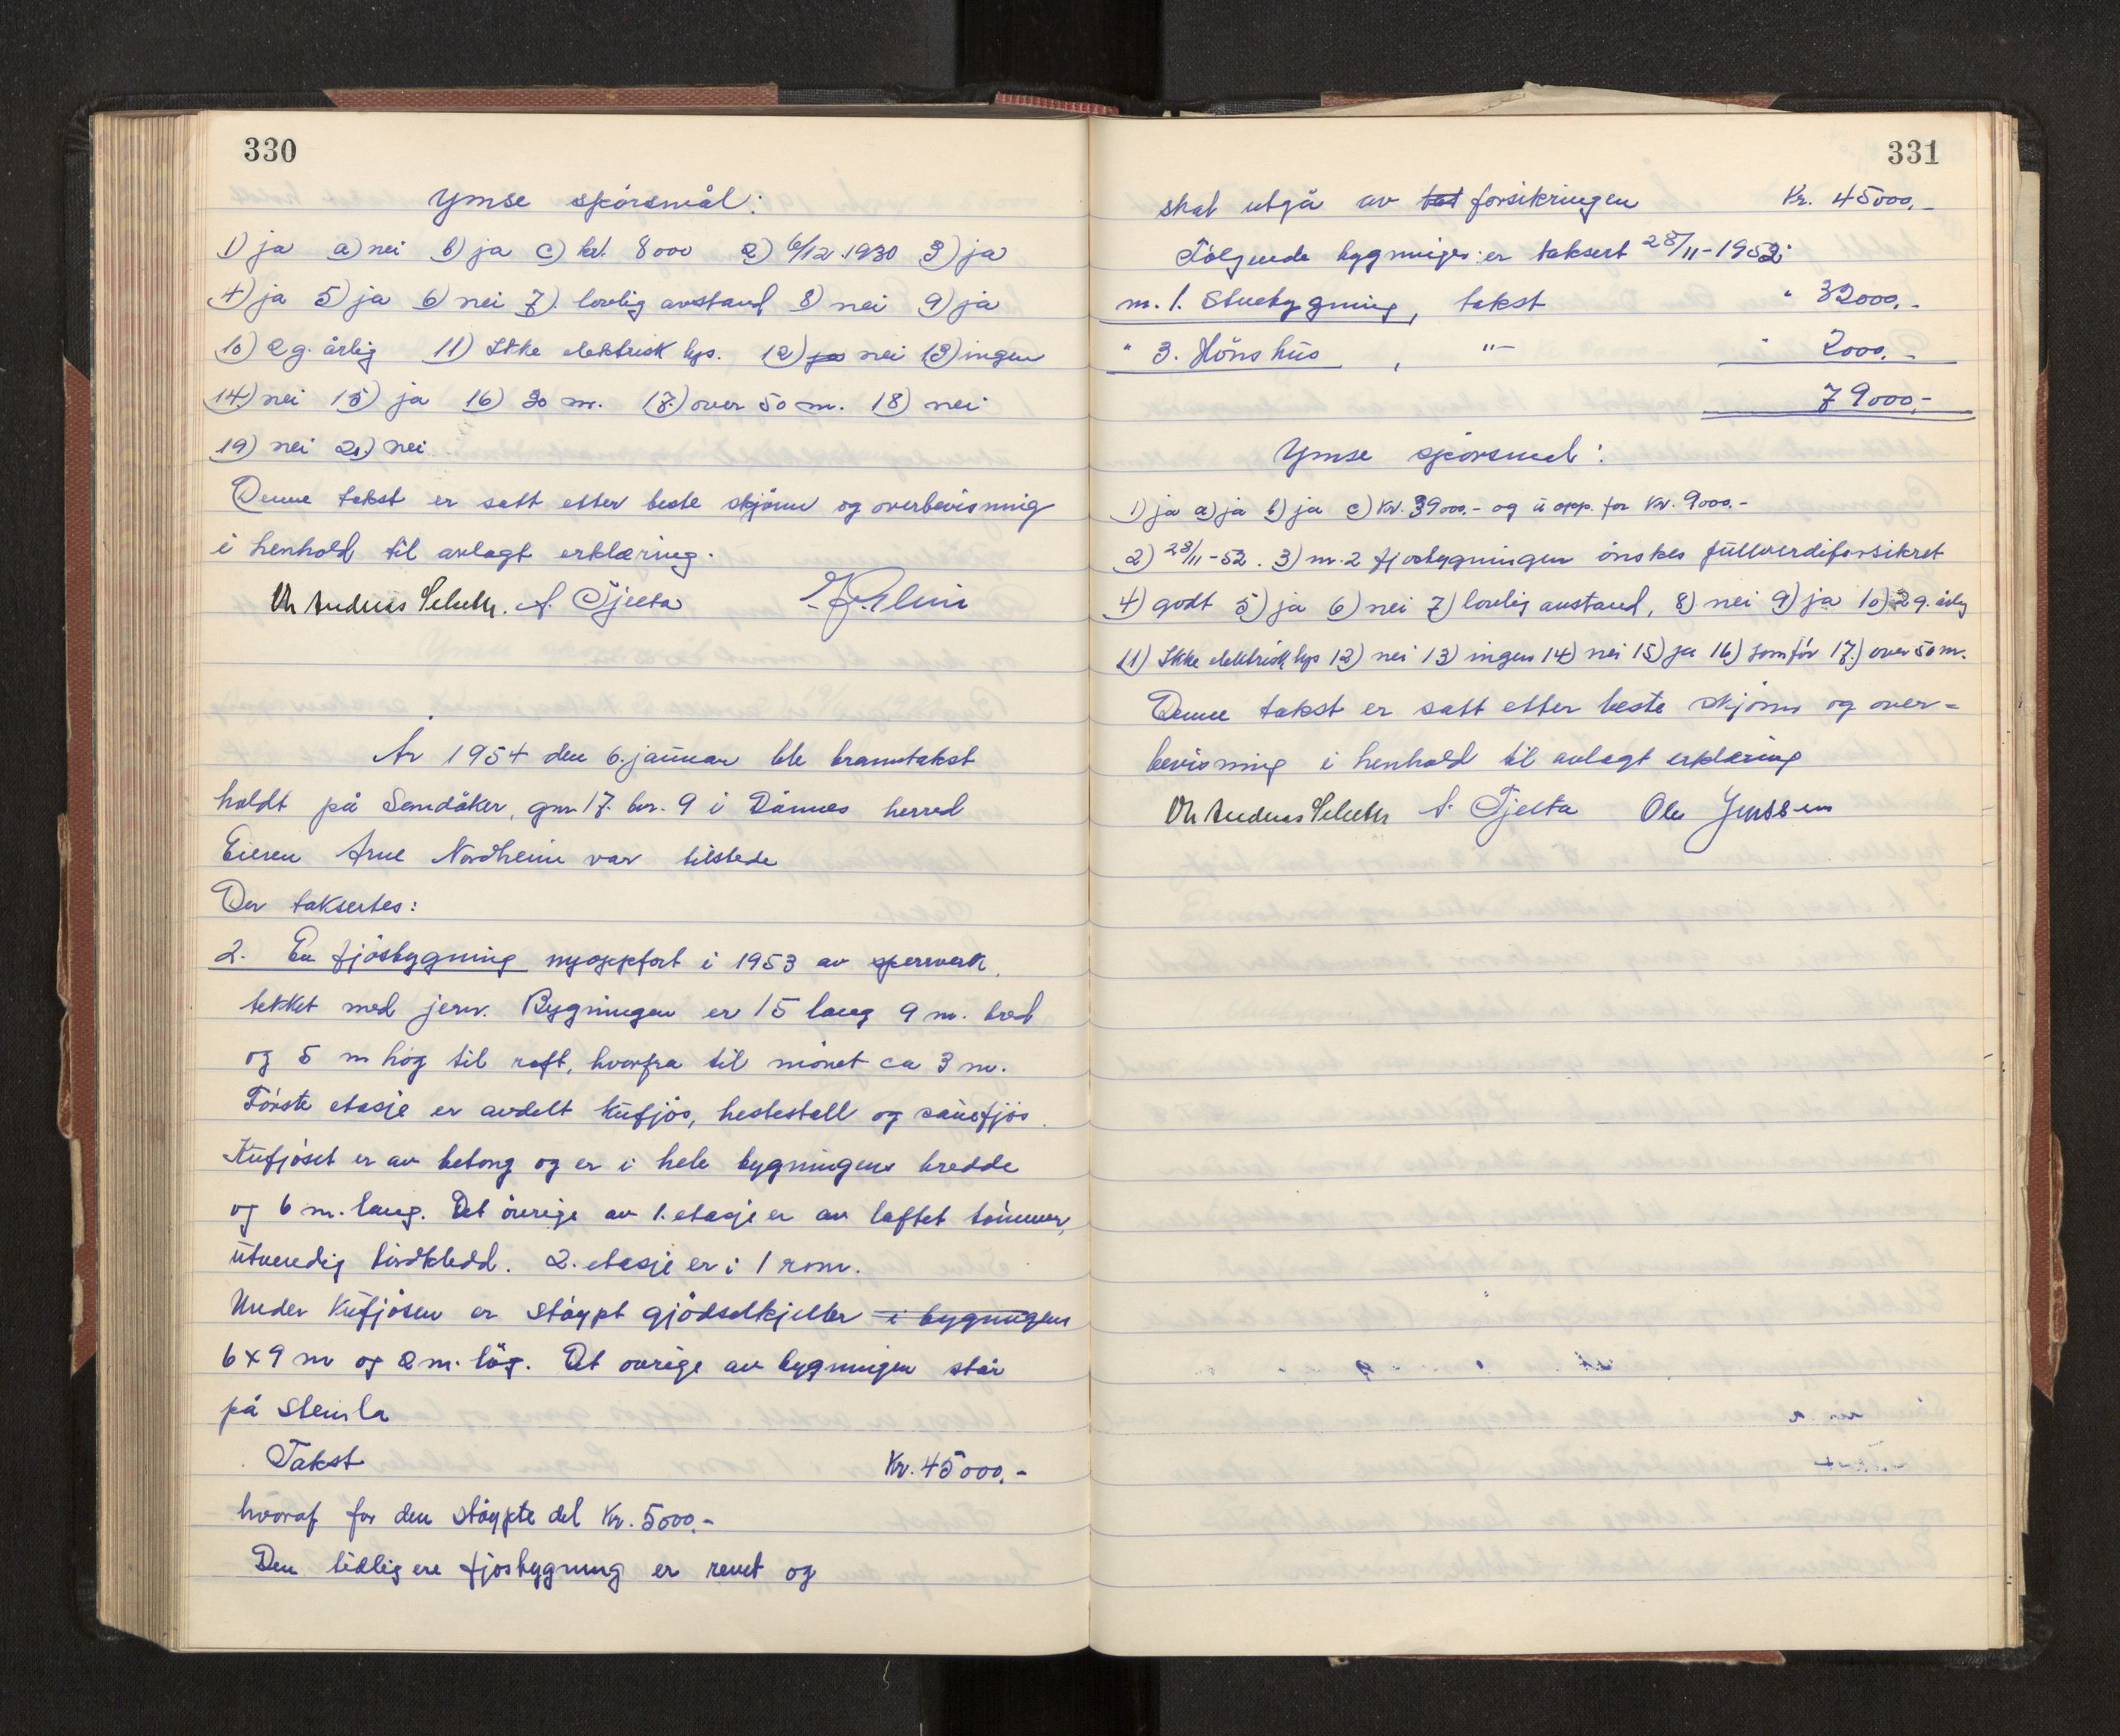 330
Ymse spörsmål:
1) ja a) nei b) ja c) kr. 8000 2) 6/12.1930 3) ja
4) ja 5) ja 6) nei 7). lovlig avstand 8) nei 9) ja
10) 2 g. årlig 11) Ikke elektrisk lys. 12) ja nei 13) ingen
14) nei 15) ja 16) 30 m. 17.) over 50 m. 18) nei
19) nei 21.) nei
Denne takst er satt etter beste skjönn og overbevisning
i henhold til avlagt erklæring.
A. Tjelta
År 1954 den 6. januar ble branntakst
holdt på Sandåker, gnr. 17. bnr. 9 i Dönnes herred
Eieren Arne Nordheim var tilstede
Der taksertes:
2. En fjösbygning nyoppfört i 1953 av sperrverk,
tekket med jern. Bygningen er 15 lang 9 m. bred
og 5 m hög til raft, hvorfra til mönet ca 3 m.
Förste etasje er avdelt kufjös, hestestall og sauefjös.
Kufjöset er av betong og er i hele bygningens bredde
og 6 m. lang. Det övrige av 1. etasje er av laftet tömmer,
utvendig bordkledd. 2. etasje er i 1 rom.
Under kufjösen er stöypt gjödselkjeller i bygningens
6 x 9 m og 2 m. hög. Det övrige av bygningen står
på steinla
Takst Kr. 45000.-
hvoraf for den stöypte del Kr. 5000.-
Den tidligere fjösbygning er revet og
331
skal utgå av tat forsikringen Kr. 45000.-
Fölgende bygninger er taksert 28/11-1952:
nr. 1. Stuebygning, takst " 32000.-
" 3. Hönshus, "- " 2000.-
79000.-
Ymse spörsmål:
1) ja a) ja b) ja c) Kr. 39000.- og u opp. for Kr. 9000.-
2) 28/11-52. 3) nr. 2 fjösbygningen önskes fullverdiforsikret
4) godt 5) ja 6) nei 7) lovlig avstand, 8) nei 9) ja 10) 2 g. årlig
11) Ikke elektrisk lys 12) nei 13) ingen 14) nei 15) ja 16) som för 17.) over 50 m.
Denne takst er satt etter beste skjönn og over-
bevisning i henhold til avlagt erklæring
A. Tjelta Ole Jenssen